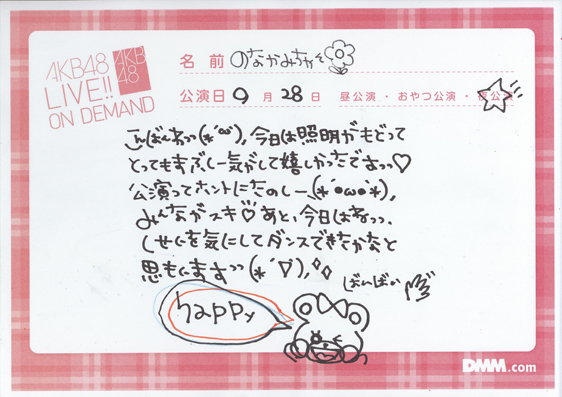 AKB48
LIVE!!
ON DEMAND
AKB
48
名前 のなかみさと
公演日 9月28日 昼公演・おやつ公演・夜公演
こんばんわっっ(*´ω`)、今日は照明がもどって
とってもまぶしー気がして嬉しかったですっっ♡
公演ってホントにたのしー、(*´●ω●`*)、
みんながスキ♡あと、今日はねっっ、
しせいを気にしてダンスできたかなと
思もいますっっ(*´▽`)、
ばいばい
happy
DMM.com